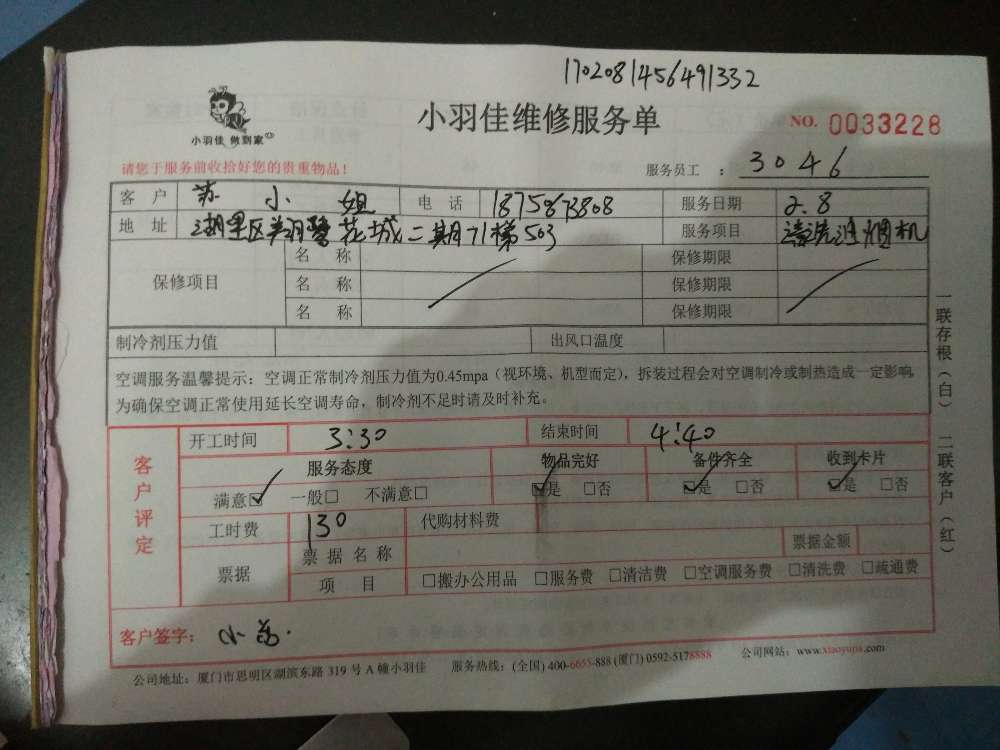 1702081456491332
小羽佳 做到家
小羽佳维修服务单
NO. 0033228
请您于服务前收拾好您的贵重物品！
服务员工 ： 3046
客 户 苏 小 姐 电 话 服务日期 2.8
地 址 湖里区 花城二期71梯503 服务项目 清洗油烟机
保修项目 名 称 保修期限
名 称 保修期限
名 称 保修期限
制冷剂压力值 出风口温度
空调服务温馨提示：空调正常制冷剂压力值为0.45mpa（视环境、机型而定），拆装过程会对空调制冷或制热造成一定影响，
为确保空调正常使用延长空调寿命，制冷剂不足时请及时补充。
一联存根（白） 二联客户（红）
客户评定
开工时间 3:30 结束时间 4:40
服务态度 物品完好 备件齐全 收到卡片
满意☑ 一般□ 不满意□ ☑是 □否 ☑是 □否 ☑是 □否
工时费 130 代购材料费
票据 票据名称 票据金额
项 目 □搬办公用品 □服务费 □清洁费 □空调服务费 □清洗费 □疏通费
客户签字： 小
公司地址：厦门市思明区湖滨东路 319 号 A 幢小羽佳 服务热线：(全国) 400-6655-888 (厦门) 0592-5178888 公司网站：www.xiaoyujia.com